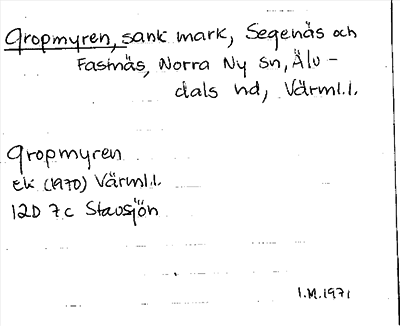 Gropmyren, sank mark, Segenäs och
Fastnäs, Norra Ny sn, Älv-
dals hd, Värml.l.
Gropmyren
ek (1970) Värml.l.
12D 7c Stavsjön
I.M.1971